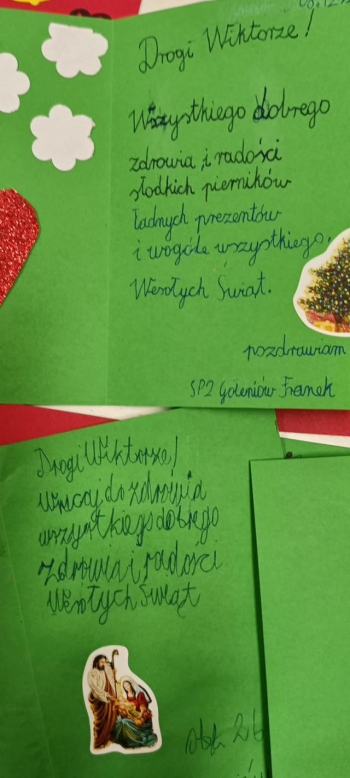 Drogi Wiktorze!
Wszystkiego dobrego
zdrowia i radości
słodkich pierników
ładnych prezentów
i wogóle wszystkiego.
Wesołych Świat.
pozdrawiam
SP2 Goleniów Franek
Drogi Wiktorze!
Wracaj do zdrowia
wszystkiego dobrego
Zdrowia i radości
Wesołych Świąt